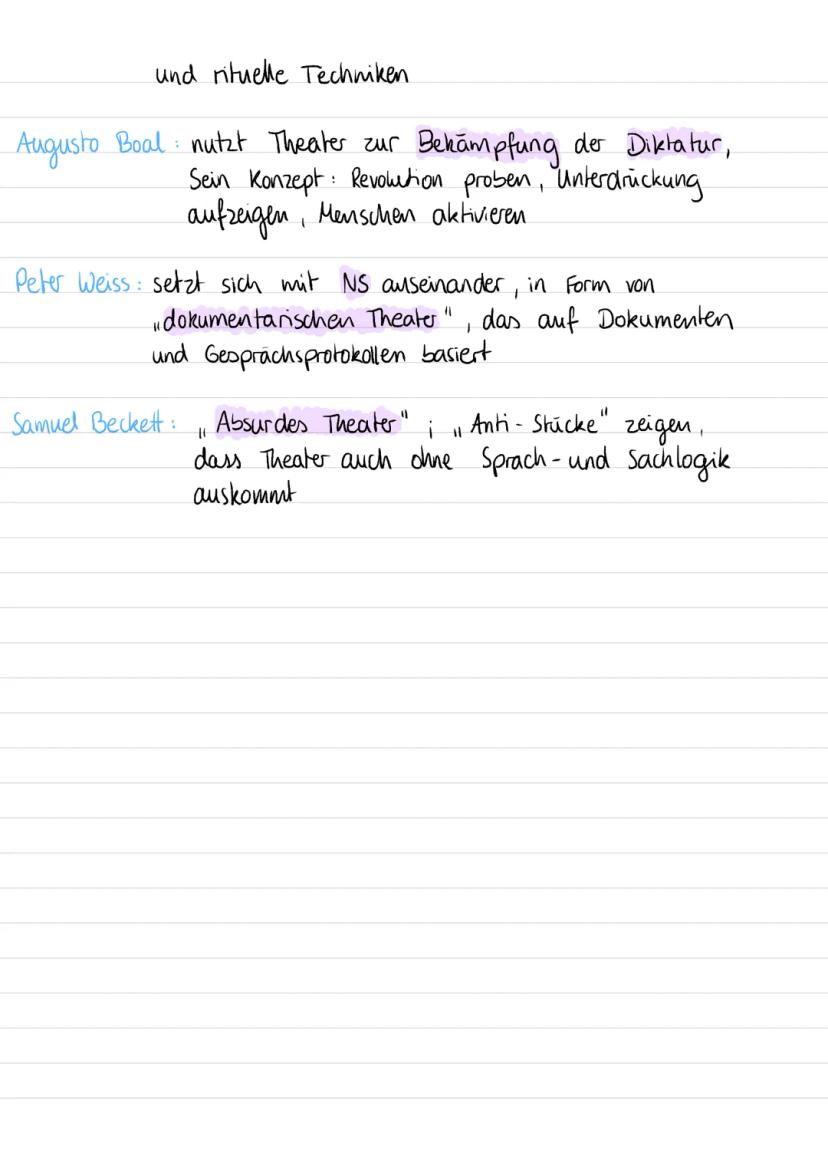 und rituelle Techniken
Augusto Boal : nutzt Theater zur Bekämpfung der Diktatur,
Sein Konzept : Revolution proben, Unterdrückung
aufzeigen, Menschen aktivieren
Peter Weiss : setzt sich mit NS auseinander, in Form von
„dokumentarischen Theater", das auf Dokumenten
und Gesprächsprotokollen basiert
Samuel Beckett : „Absurdes Theater" ; „Anti-Stücke" zeigen,
dass Theater auch ohne Sprach- und Sachlogik
auskommt